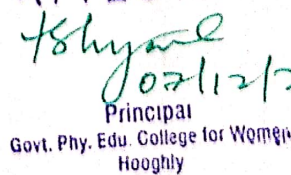 07/12/2
Principal
Govt. Phy. Edu. College for Women
Hooghly